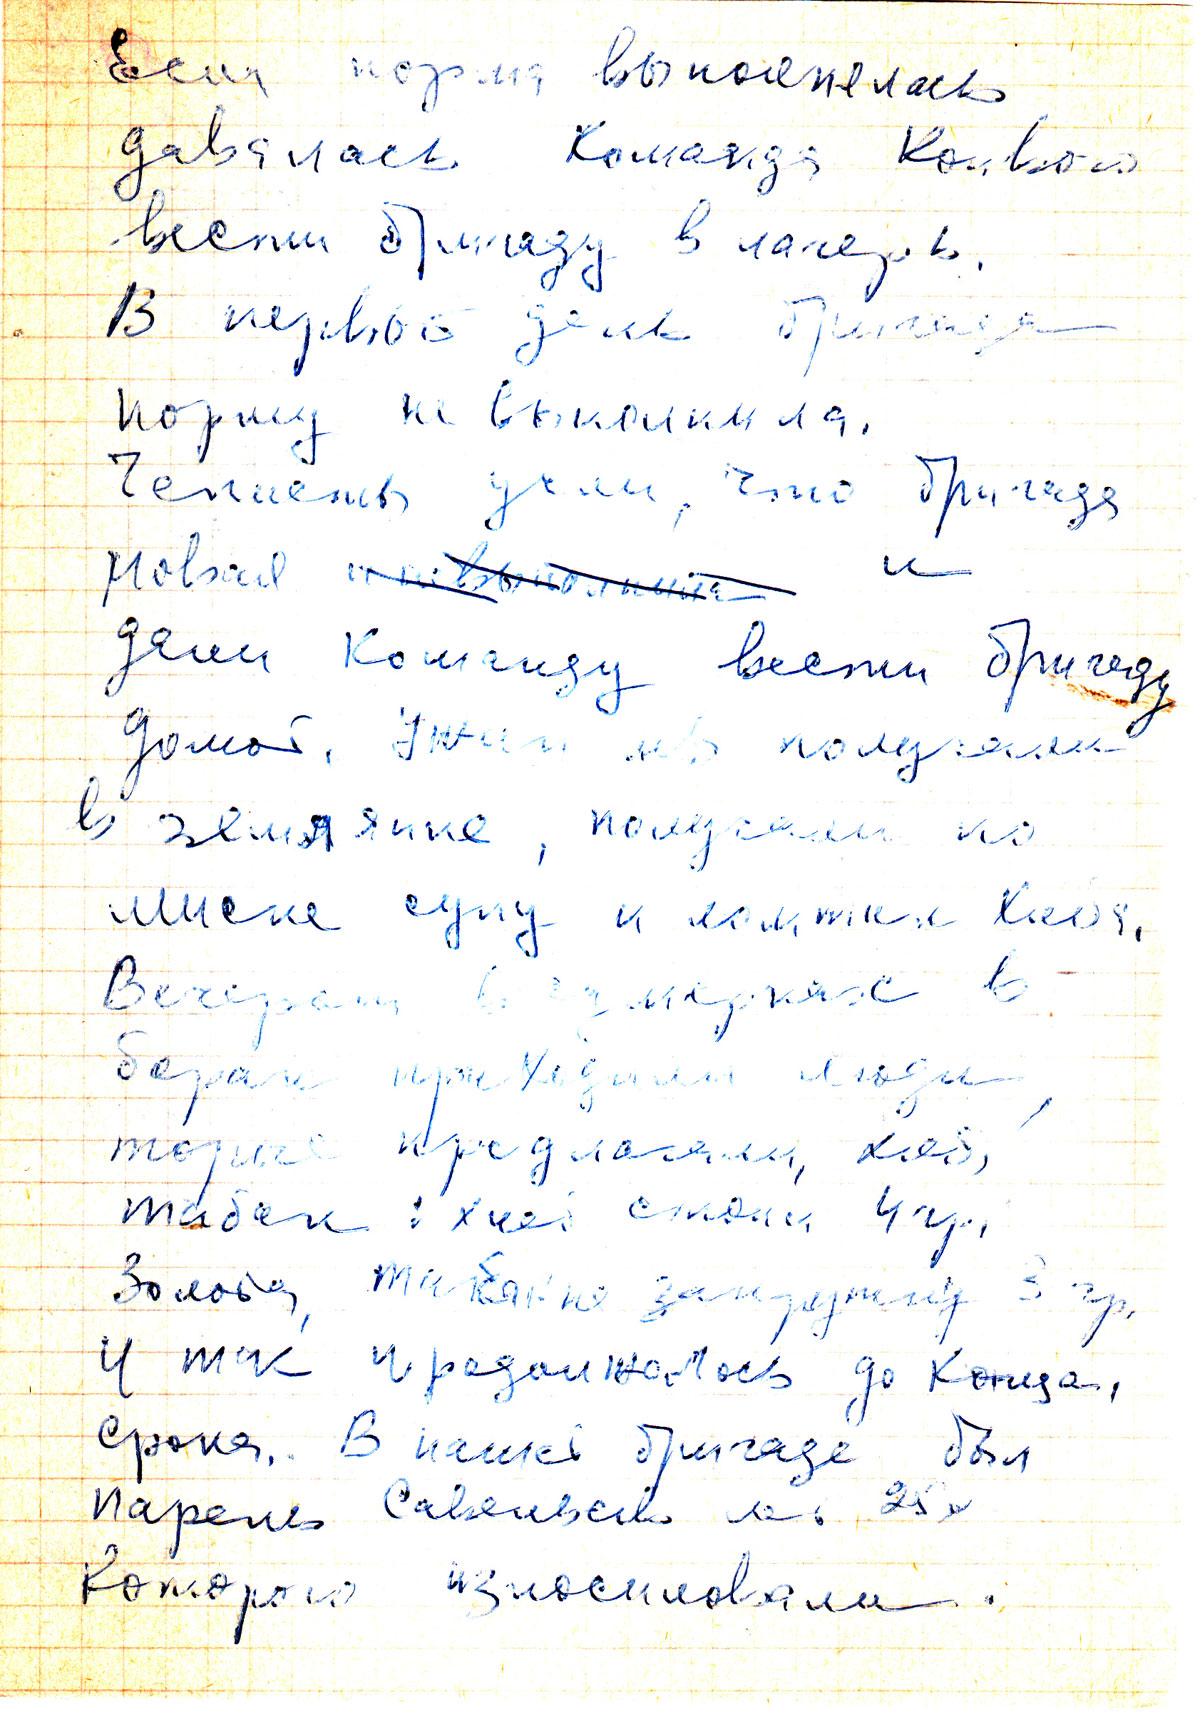 Если норма выполнялась
давалась команда конвою
вести бригаду в лагерь.
В первый день бригада
норму не выполнила.
учли, что бригада
новая и не выполнила и
дали команду вести бригаду
домой. Ужин мы получали
в землянке, получали по
миске супу и ломтик хлеба.
Вечерами в сумерках в
барак приходили люди,
предлагали, хлеб,
табак: хлеб стоил 4 гр.
золота, табак на закрутку 3 гр.
И так продолжалось до конца,
срока. В нашей бригаде был
парень 25
которого изнасиловали.